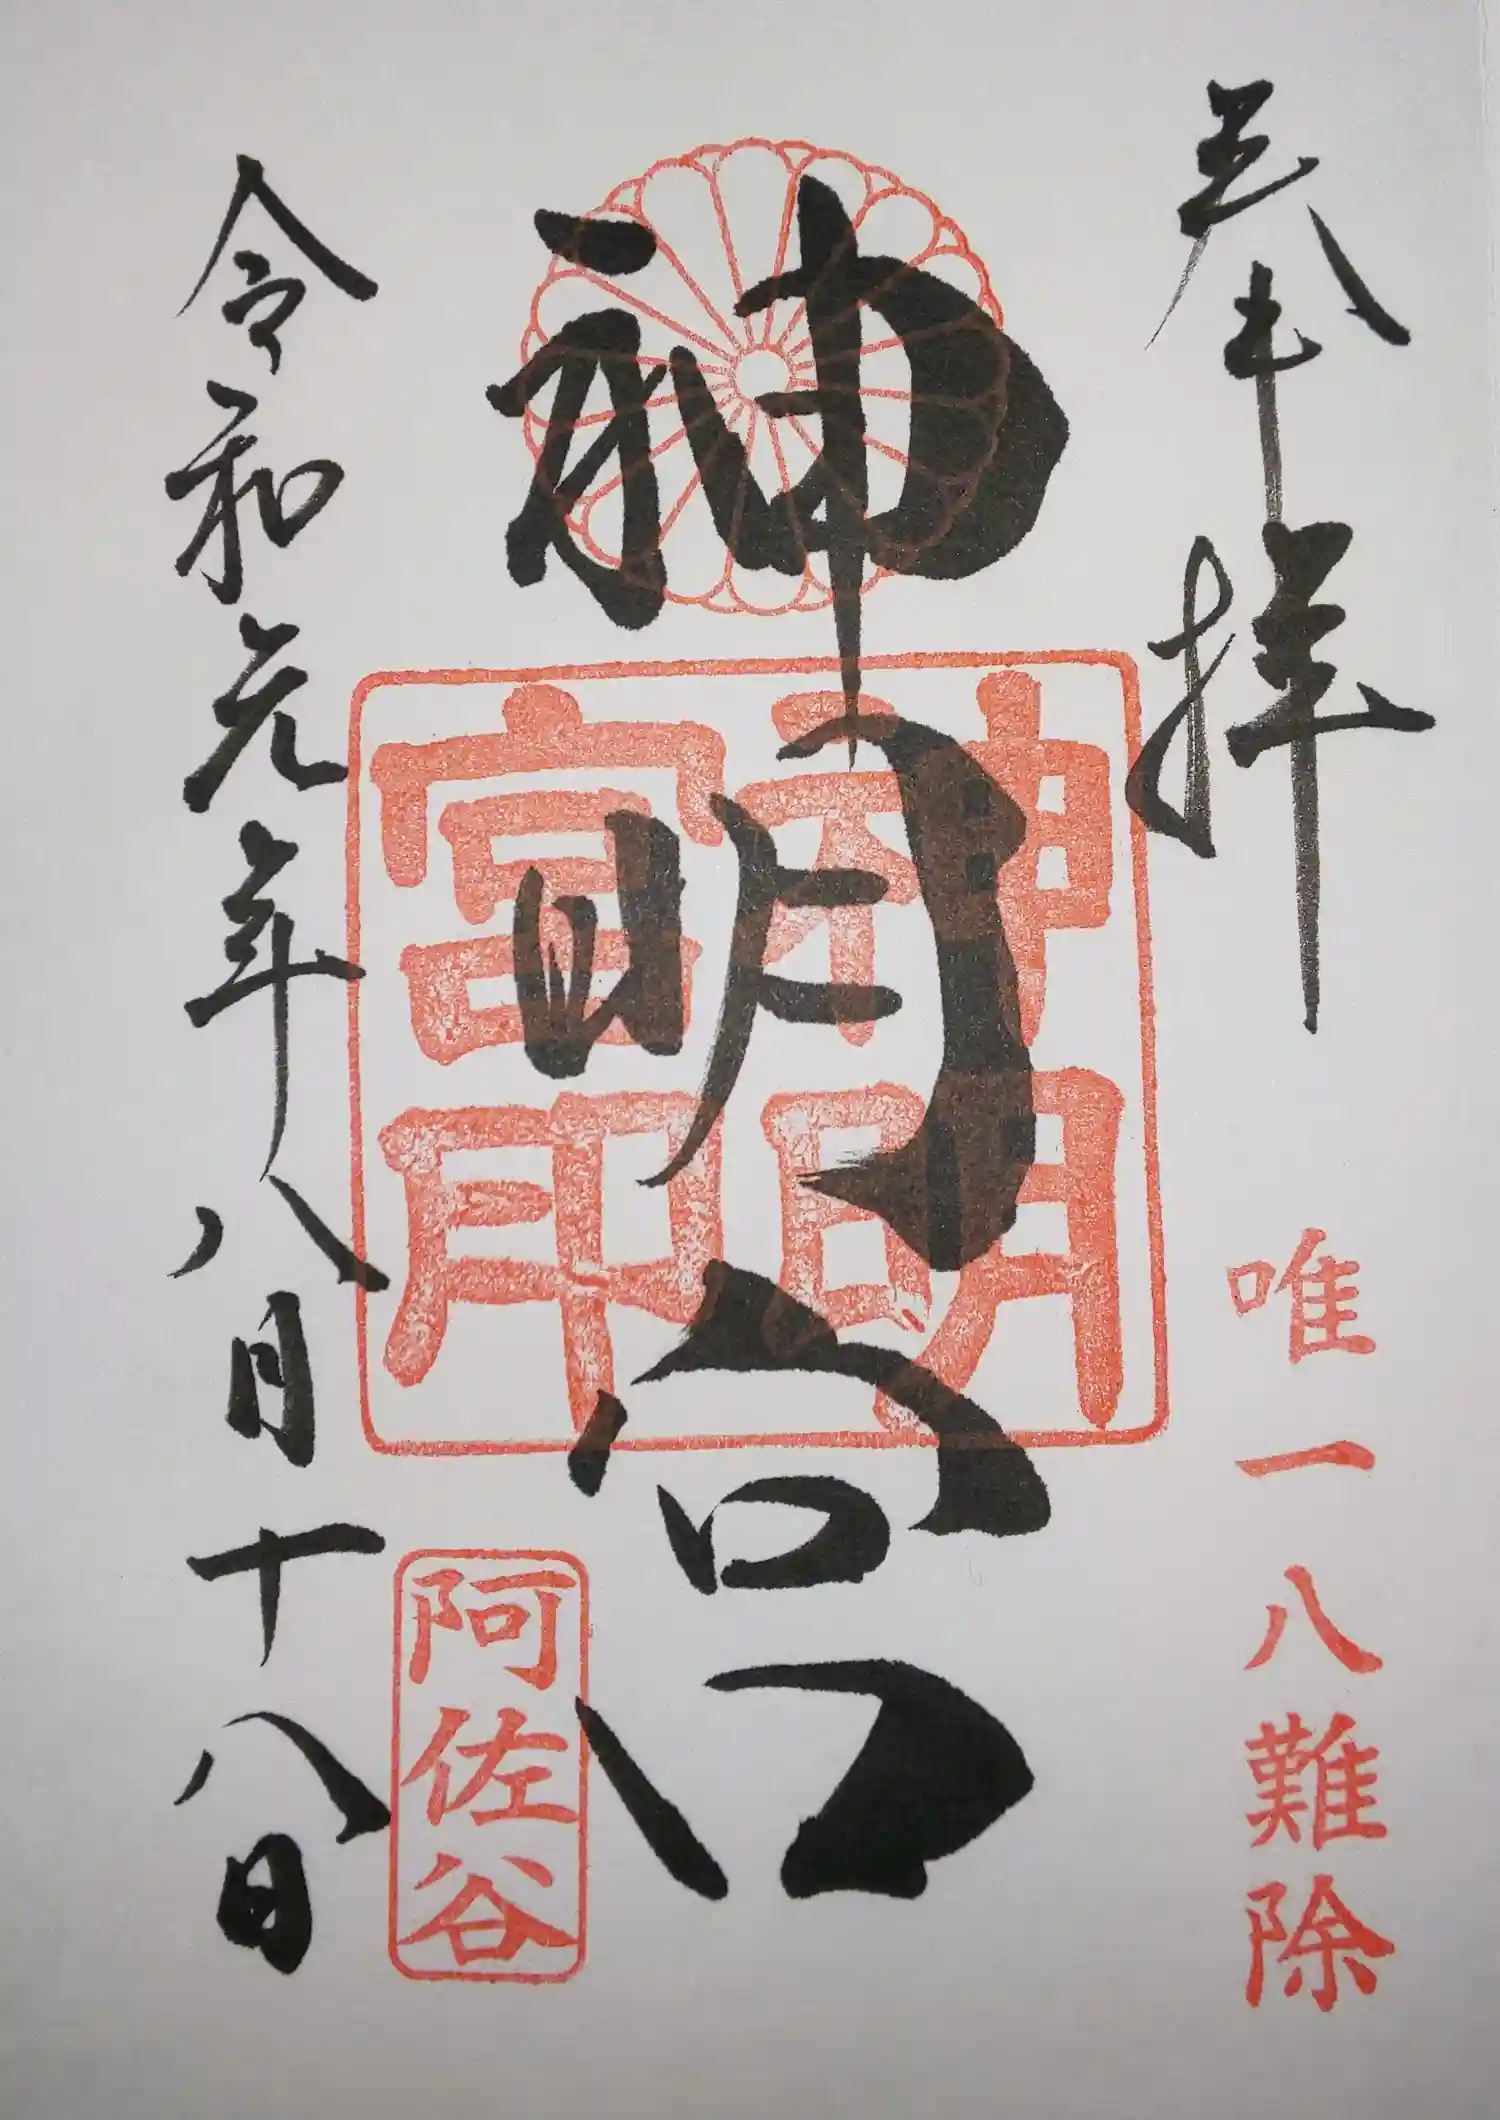 奉拝
唯一八難除
神明宮
神明
宮印
阿佐谷
令和元年八月十八日